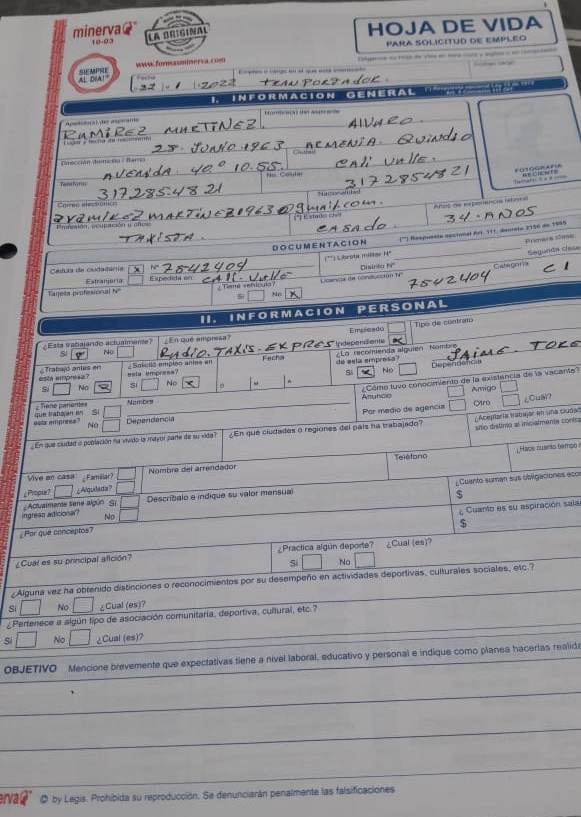 minerva
10-03
LA ORIGINAL
HOJA DE VIDA
PARA SOLICITUD DE EMPLEO
SIEMPRE
AL DIA!
www.formasminerva.com
Fecha
22 1 2022
Empleo o cargo en el que está interesado
TRANPORTADOR.
I. INFORMACION GENERAL
Apellido(s) del aspirante
Nombre(s) del aspirante
RAMÍREZ MARTINEZ. ALVARO.
Lugar y fecha de nacimiento
28. JUNIO. 1963 ARMENIA. QUINDIO
Dirección domicilio / Barrio
Ciudad
AVENIDA. 40.° 10.55. CALI VALLE.
Teléfono
No. Celular
3172854821 3172854821
FOTOGRAFIA
RECIENTE
Correo electrónico
Nacionalidad
RAMIREZ MARTINEZ1963@gmail.com.
Profesión, ocupación u oficio
(*) Estado civil
Años de experiencia laboral
TAXISTA. CASADO. 34. AÑOS
DOCUMENTACION
(**) Respuesta opcional Art. 111, decreto 2150 de 1995
Cédula de ciudadanía: X Nº 7542404
(**) Libreta militar Nº
Primera clase
Extranjería: Expedida en: CALI. VALLE
Distrito Nº
Segunda clase
Tarjeta profesional Nº
¿Tiene vehículo?
Si No X
Licencia de conducción Nº
7542404
Categoría
C 1
II. INFORMACION PERSONAL
¿Esta trabajando actualmente? ¿En qué empresa?
Empleado
Tipo de contrato
Si X No RADIO. TAXIS. EXPRES Independiente X
¿Trabajó antes en
esta empresa?
¿Solicitó empleo antes en
esta empresa?
Fecha
¿Lo recomienda alguien
de esta empresa?
Nombre
JAIME. TORE
Si No X Si No X D M A Si X No Dependencia
¿Tiene parientes
que trabajan en
esta empresa?
Si
No
Nombre
Dependencia
¿Cómo tuvo conocimiento de la existencia de la vacante?
Anuncio Amigo
Por medio de agencia Otro ¿Cuál?
¿En qué ciudad o población ha vivido la mayor parte de su vida?
¿En qué ciudades o regiones del país ha trabajado?
¿Aceptaría trabajar en una ciudad
sitio distinto al inicialmente contra
Vive en casa: ¿Familiar?
¿Propia? ¿Alquilada?
Nombre del arrendador
Teléfono
¿Hace cuánto tiempo
¿Actualmente tiene algún
ingreso adicional?
Si
No
Descríbalo e indique su valor mensual
¿Cuanto suman sus obligaciones eco
$
¿Por qué conceptos?
¿ Cuanto es su aspiración sala
$
¿Cuál es su principal afición?
¿Practica algún deporte? ¿Cual (es)?
Si No
¿Alguna vez ha obtenido distinciones o reconocimientos por su desempeño en actividades deportivas, culturales sociales, etc.?
Si No ¿Cual (es)?
¿Pertenece a algún tipo de asociación comunitaria, deportiva, cultural, etc.?
Si No ¿Cual (es)?
OBJETIVO Mencione brevemente que expectativas tiene a nivel laboral, educativo y personal e indique como planea hacerlas realida
© by Legis. Prohibida su reproducción. Se denunciarán penalmente las falsificaciones